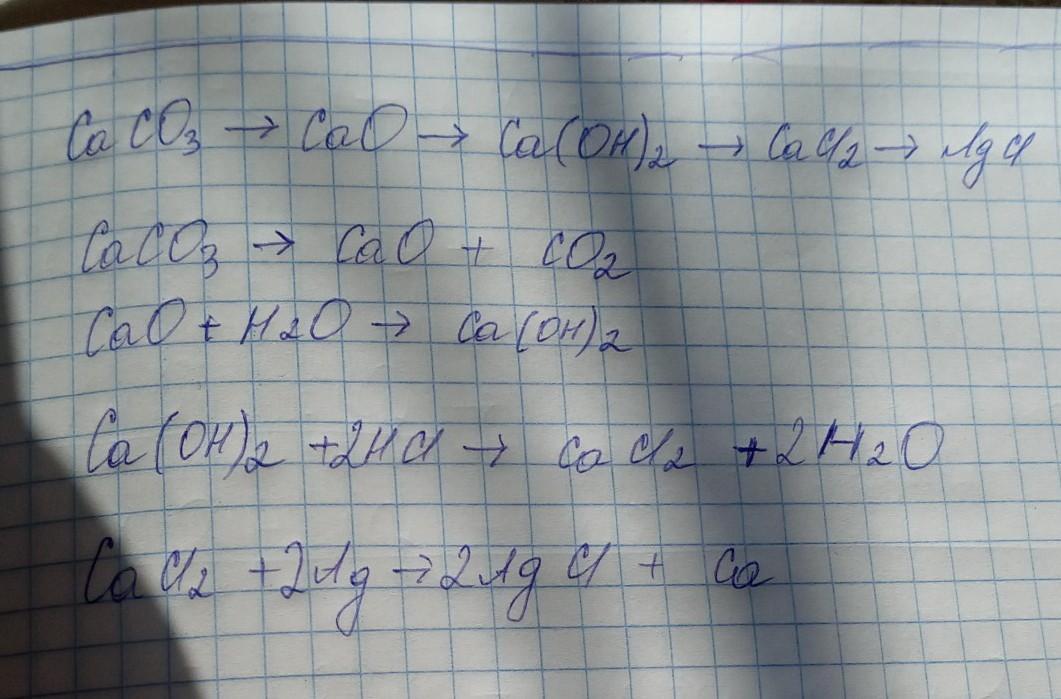 CaCO₃ → CaO → Ca(OH)₂ → CaCl₂ → AgCl
CaCO₃ → CaO + CO₂
CaO + H₂O → Ca(OH)₂
Ca(OH)₂ + 2HCl → CaCl₂ + 2H₂O
CaCl₂ + 2Ag → 2AgCl + Ca